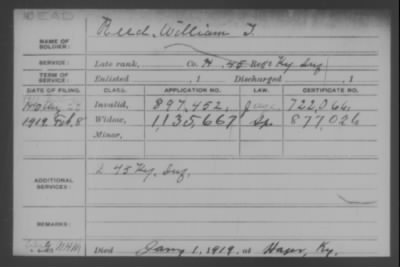 DEAD
NAME OF SOLDIER: Reed, William T.
SERVICE: Late rank, Co. H, 45 Reg't Ky Inf
TERM OF SERVICE: Enlisted , 1 Discharged , 1
DATE OF FILING. CLASS. APPLICATION NO. LAW. CERTIFICATE NO.
Invalid, 897,452, 722,066,
1919 Feb. 8 Widow, 1,135,667 877,026
Minor,
ADDITIONAL SERVICES: L 45 Ky. Inf,
REMARKS:
Died Jany 1, 1919, at Hager, Ky.